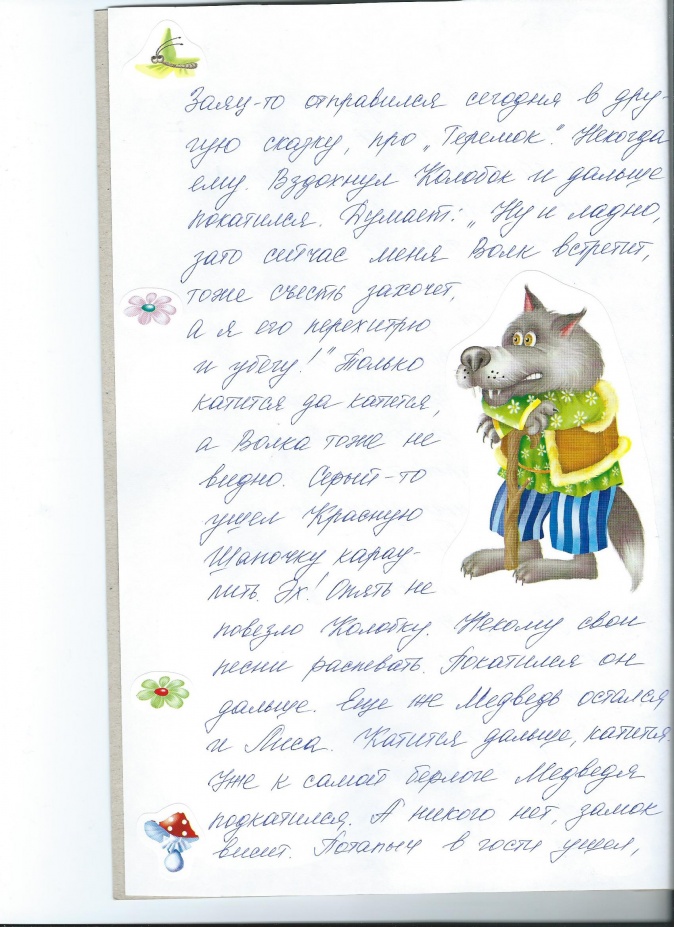 Заяц-то отправился сегодня в дру-
гую сказку, про „Теремок". Некогда
ему. Вздохнул Колобок и дальше
покатился. Думает: „Ну и ладно,
зато сейчас меня Волк встретит,
тоже съесть захочет,
а я его перехитрю
и убегу!" Только
катится да катится,
а Волка тоже не
видно. Серый-то
ушел Красную
Шапочку карау-
лить. Эх! Опять не
повезло Колобку. Некому свои
песни распевать. Покатился он
дальше. Еще же Медведь остался
и Лиса. Катится дальше, катится.
Уже к самой берлоге Медведя
подкатился. А никого нет, замок
висит. Потапыч в гости ушел,